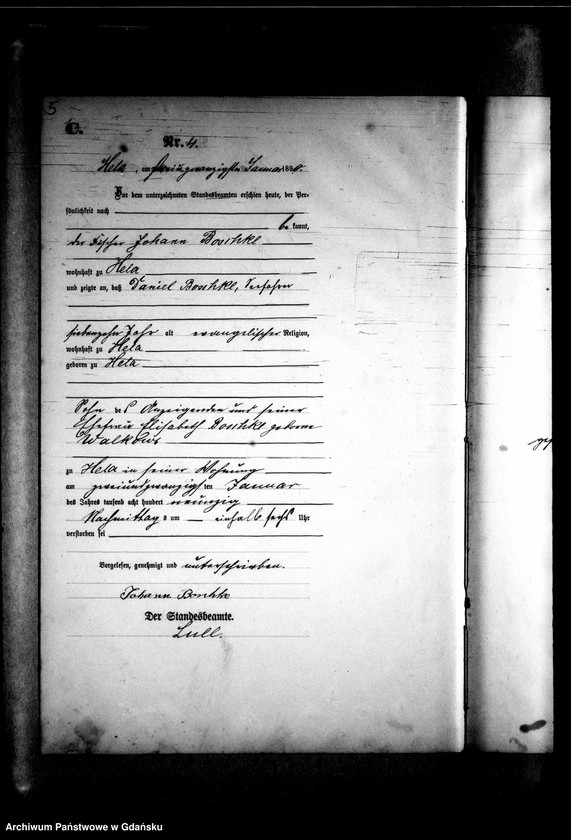 5
C.
Nr. 4.
Hela, am dreiundzwanzigsten Januar 1890.
Vor dem unterzeichneten Standesbeamten erschien heute, der Per-
sönlichkeit nach
bekannt,
der Fischer Johann Boschke
wohnhaft zu Hela
und zeigte an, daß Daniel Boschke, Seefahrer
siebenzehn Jahr alt evangelischer Religion,
wohnhaft zu Hela
geboren zu Hela
Sohn des Anzeigenden und seiner
Ehefrau Elisabeth Boschke geborne
Walkows
zu Hela in seiner Wohnung
am zweiundzwanzigsten Januar
des Jahres tausend acht hundert neunzig
Nachmittags um — einhalb sechs Uhr
verstorben sei
Vorgelesen, genehmigt und unterschrieben.
Johann Boschke
Der Standesbeamte.
Lull.
Archiwum Państwowe w Gdańsku